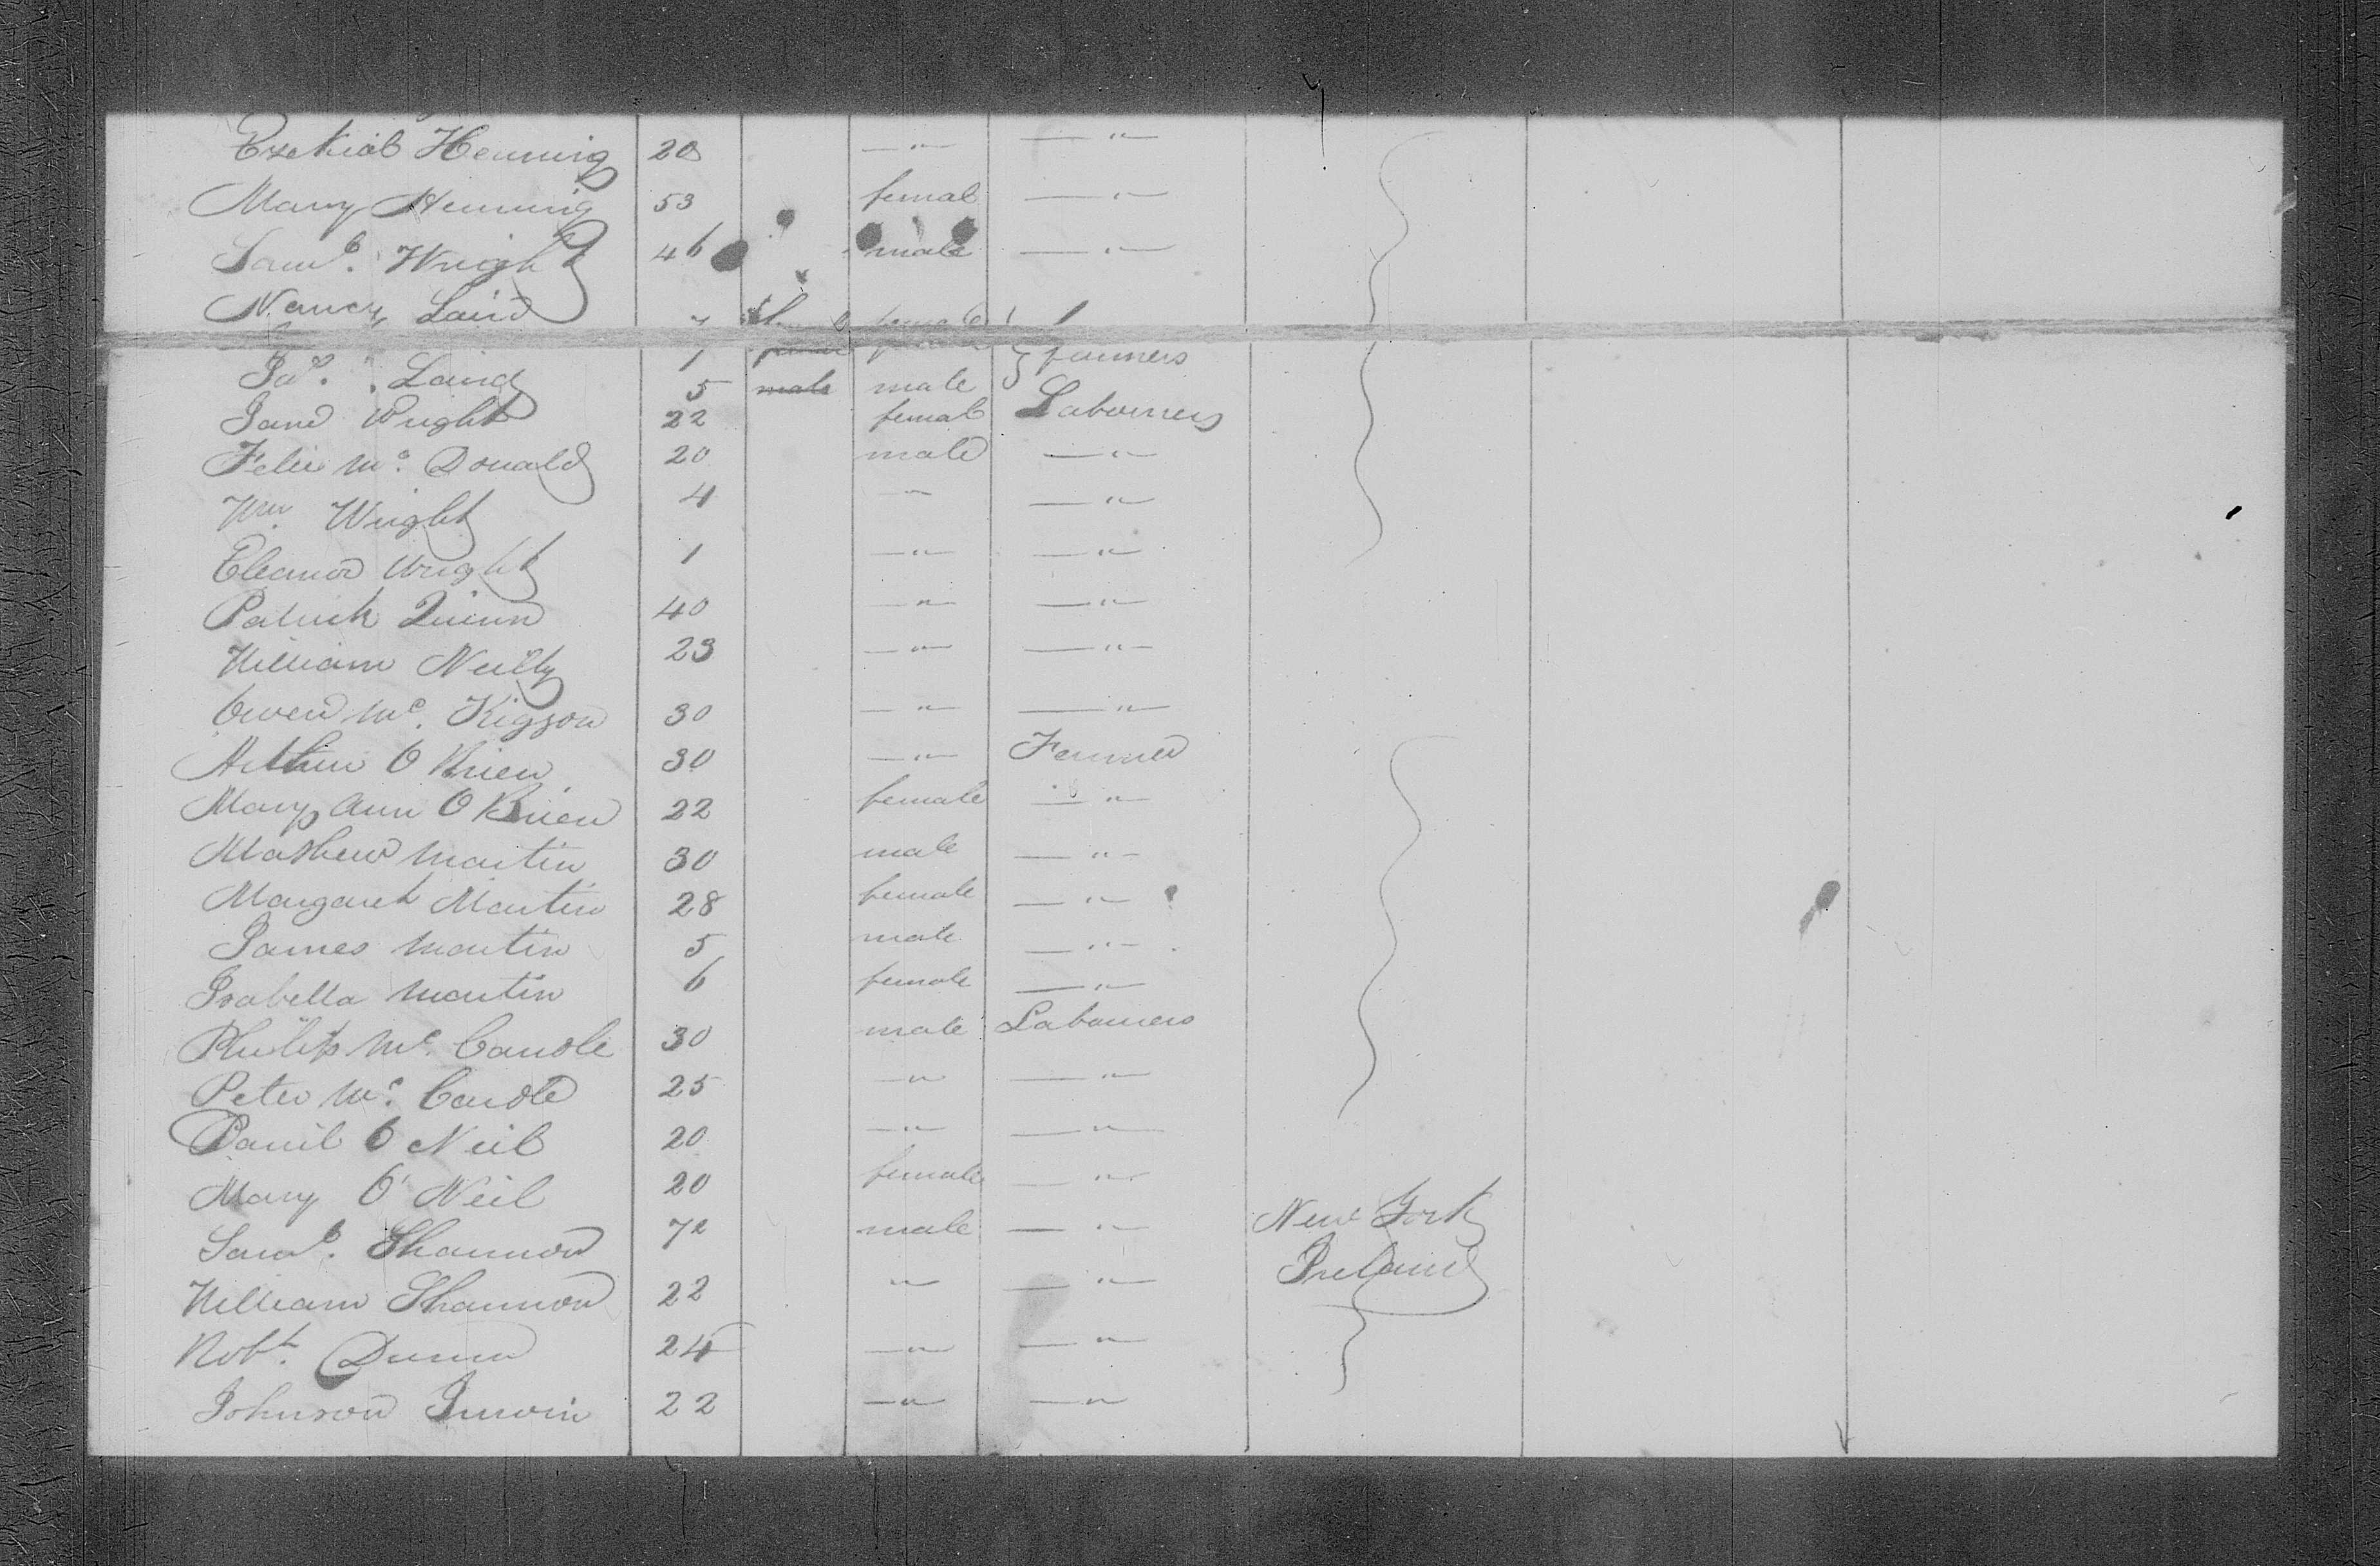 Ezekiel Henning 20 — " — — " —
Mary Henning 53 female — " —
Saml. Wright 46 male — " —
Nancy Laird 7 female
Jas. Laird 5 male male farmers
Jane Wright 22 female Labourers
Felix Mc. Donald 20 male — " —
Wm. Wright 4 " — " —
Eleanor Wright 1 — " — — " —
Patrick Quinn 40 — " — — " —
William Neilly 23 — " — — " —
Owen Mc. Kigzon 30 — " — — " —
Arthur O Brien 30 — " — Farmer
Mary Ann O Brien 22 female — " —
Mathew Martin 30 male — " —
Margaret Martin 28 female — " —
James Martin 5 male — " —
Isabella Martin 6 female — " —
Philip Mc. Cardle 30 male Labourers
Peter Mc. Cardle 25 — " — — " —
Daniel O Neil 20 — " — — " —
Mary O' Neil 20 female — " —
Saml. Shannon 72 male — " — New York
William Shannon 22 " — " — Ireland
Robt. Dunn 24 — " — — " —
Johnson Irwin 22 — " — — " —